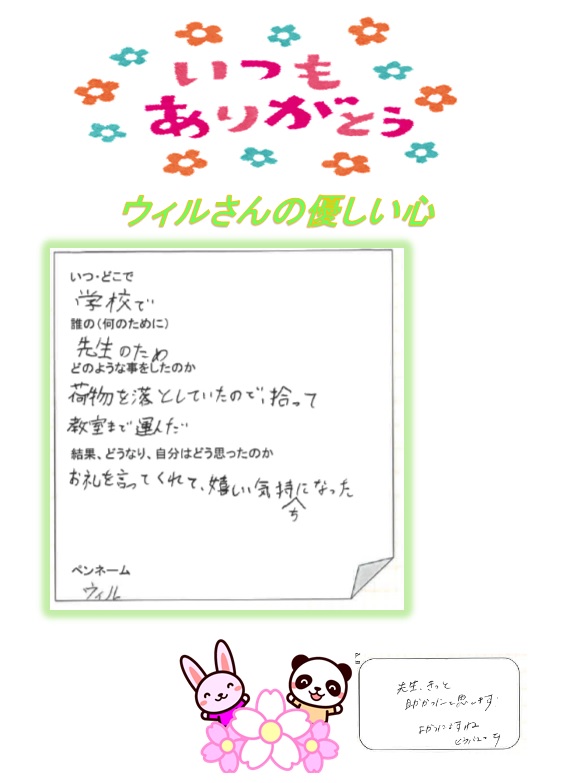 いつも
ありがとう
ウィルさんの優しい心
いつ・どこで
学校で
誰の(何のために)
先生のため
どのような事をしたのか
荷物を落としていたので、拾って
教室まで運んだ
結果、どうなり、自分はどう思ったのか
お礼を言ってくれて、嬉しい気持になった
ち
ペンネーム
ウィル
先生、きっと
助かったと思います
よかったですね